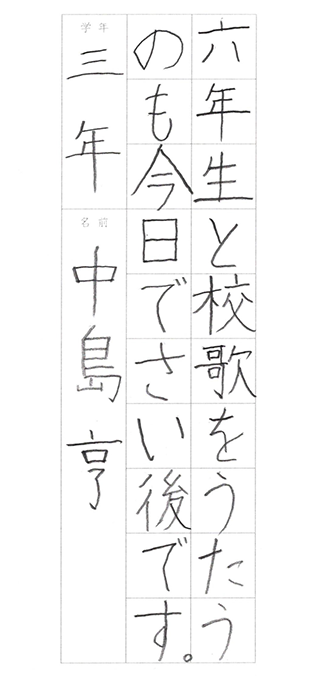 六年生と校歌をうたう
のも今日でさい後です。
学年 三年 名前 中島亨